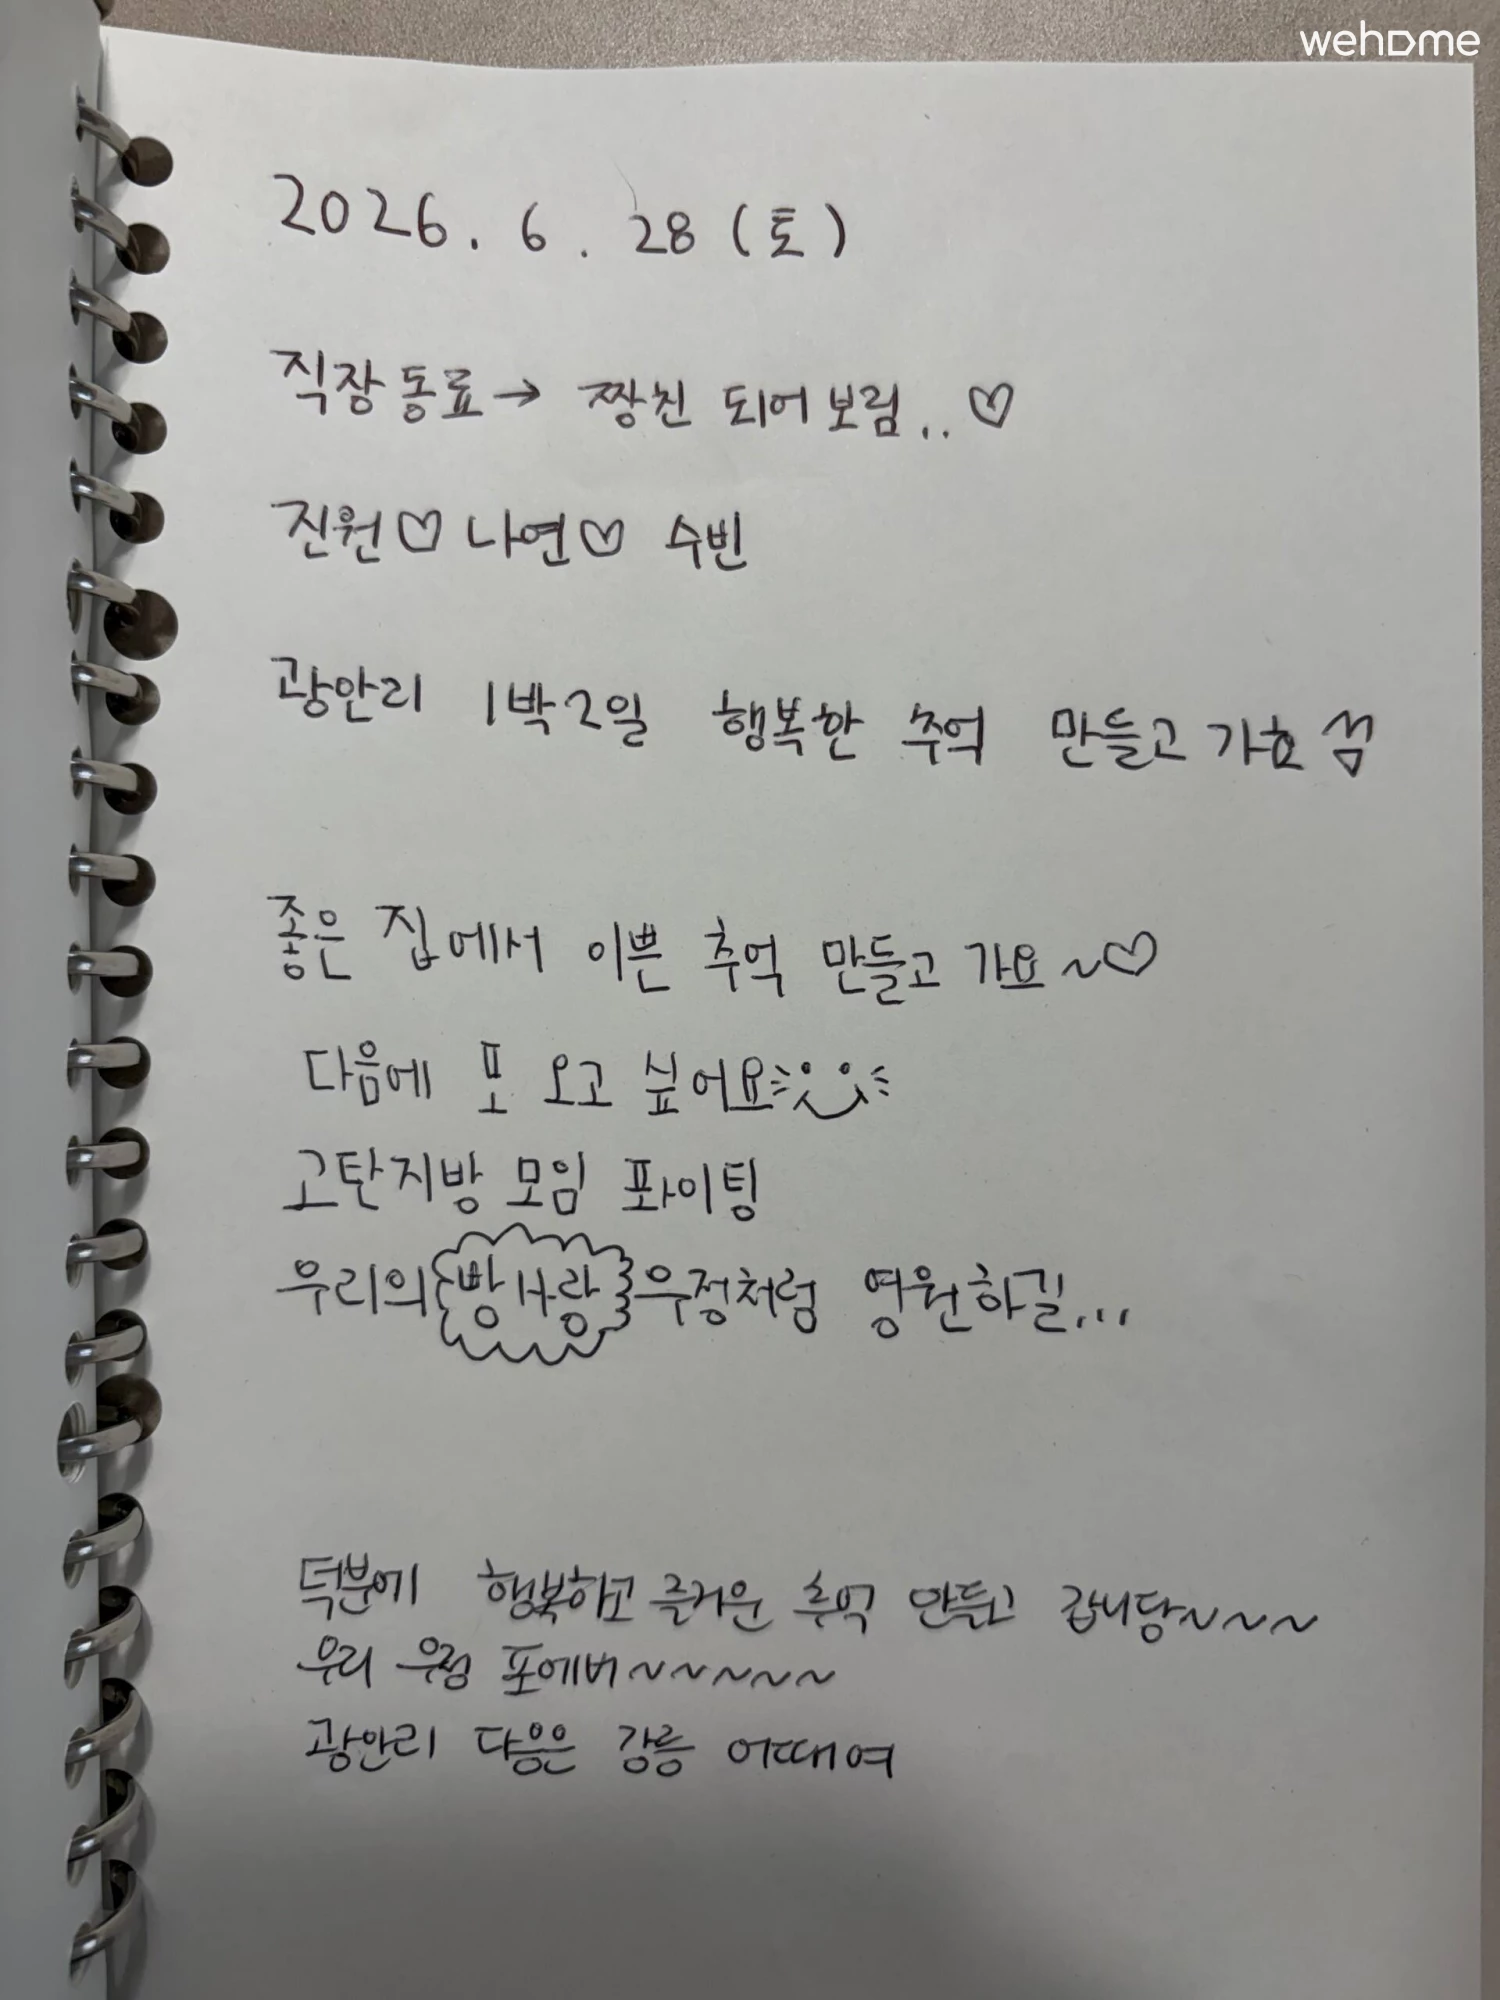 wehome
2026. 6. 28 (토)
직장동료→ 짱친 되어보림..♡
진원♡나연♡ 수빈
광안리 1박2일 행복한 추억 만들고가효
좋은 집에서 이쁜 추억 만들고 가요~♡
다음에 또 오고 싶어요
고탄지방 모임 퐈이팅
우리의 빵사랑 우정처럼 영원하길...
덕분에 행복하고 즐거운 추억 만들고 갑니당~~~~
우리 우정 포에버~~~~~~
광안리 다음은 강릉 어때여